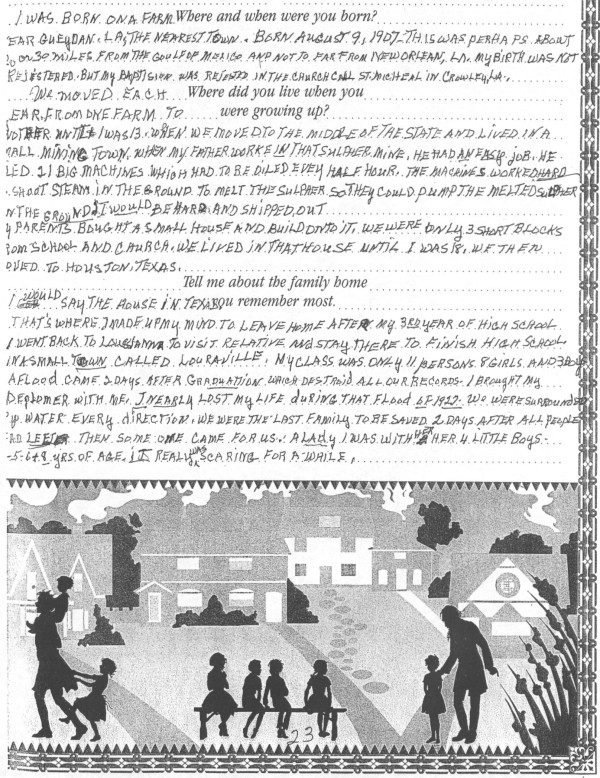 I WAS BORN ON A FARM Where and when were you born?
EAR GUEYDAN, LA, THE NEAREST TOWN. BORN AUGUST 9, 1907. THIS WAS PERHAPS ABOUT
OR 30 MILES FROM THE GOULF OF MEXICO AND NOT TO FAR FROM NEW ORLEAN, LA. MY BIRTH WAS NOT
REJESTERED. BUT MY BAPTISIUM WAS REJESTED IN THE CHURCH CALL ST. MICHEAL IN CROWLEY, LA.
WE MOVED EACH Where did you live when you
EAR, FROM ONE FARM TO were growing up?
NOTHER UNTIL I WAS 13. WHEN WE MOVED TO THE MIDDLE OF THE STATE AND LIVED IN A
MALL MINING TOWN, WHEN MY FATHER WORKE IN THAT SULPHER MINE, HE HAD AN EASY JOB. HE
LED 21 BIG MACHINES WHICH HAD TO BE OILED EVEY HALF HOUR. THE MACHINES WORKED HARD
SHOOT STEAM IN THE GROUND TO MELT THE SULPHER SO THEY COULD PUMP THE MELTED SULPHER
N THE GROUND. IT WOULD BE HARD AND SHIPPED OUT
Y PARENTS BOUGHT A SMALL HOUSE AND BUILD ONTO IT. WE WERE ONLY 3 SHORT BLOCKS
ROM SCHOOL AND CHURCH. WE LIVED IN THAT HOUSE UNTIL I WAS 18. WE THEN
OVED TO HOUSTON, TEXAS.
Tell me about the family home
I WOULD SAY THE HOUSE IN TEXAS you remember most.
THAT'S WHERE I MADE UP MY MIND TO LEAVE HOME AFTER MY 3RD YEAR OF HIGH SCHOOL
I WENT BACK TO LOUSIANNA TO VISIT RELATIVE AND STAY THERE TO FINISH HIGH SCHOOL
IN A SMALL TOWN CALLED LOURAVILLE. MY CLASS WAS ONLY 11 PERSONS 8 GIRLS AND 3 BOYS
A FLOOD CAME 2 DAYS AFTER GRADUATION WHICH DESTROID ALL OUR RECORDS. I BROUGHT MY
DEPLOMER WITH ME. I NEARLY LOST MY LIFE DURING THAT FLOOD OF 1927. WE WERE SURROUNDED
WATER EVERY DIRECTION. WE WERE THE LAST FAMILY TO BE SAVED 2 DAYS AFTER ALL PEOPLE
AD LEFT. THEN SOME ONE CAME FOR US. A LADY I WAS WITH HER 4 LITTLE BOYS
-5-6+8 YRS OF AGE. IT REALLY WAS SCARING FOR A WHILE.
23